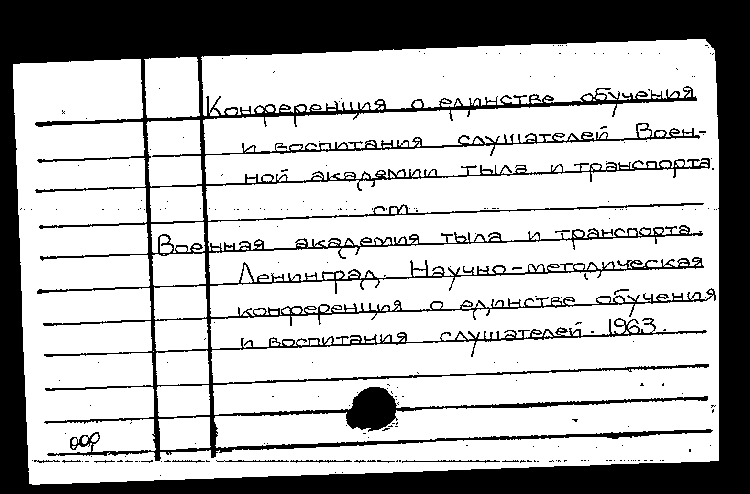 Конференция о единстве обучения
и воспитания слушателей Воен-
ной академии тыла и транспорта.
см.
Военная академия тыла и транспорта.
Ленинград. Научно-методическая
конференция о единстве обучения
и воспитания слушателей. 1963.